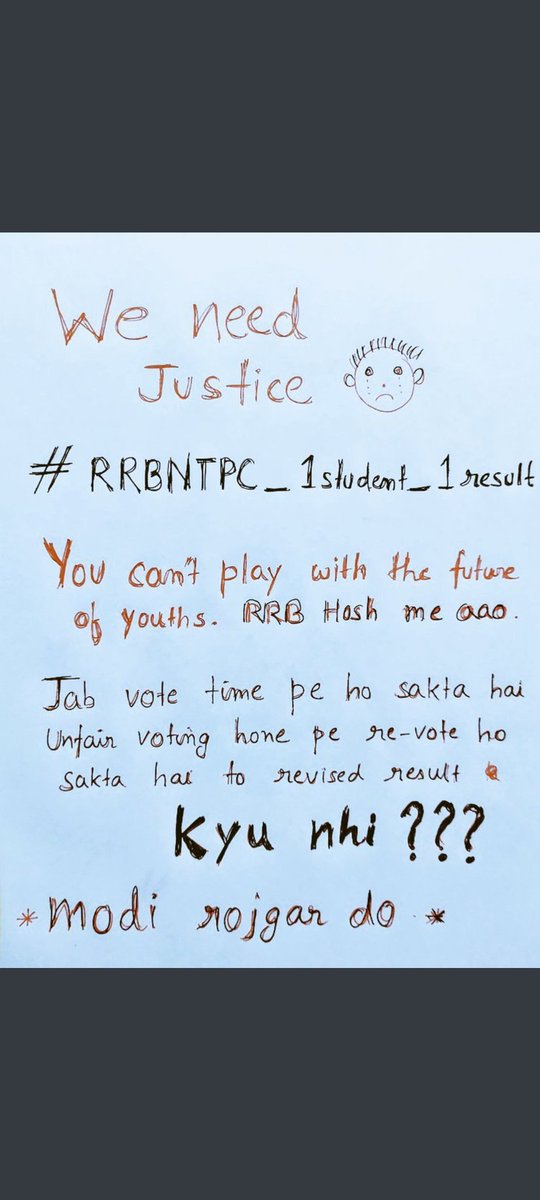 We need
Justice
# RRBNTPC_1student_1result
You can't play with the future
of youths. RRB Hosh me aao.
Jab vote time pe ho sakta hai
Unfair voting hone pe re-vote ho
sakta hai to revised result
Kyu nhi ???
* modi rojgar do *